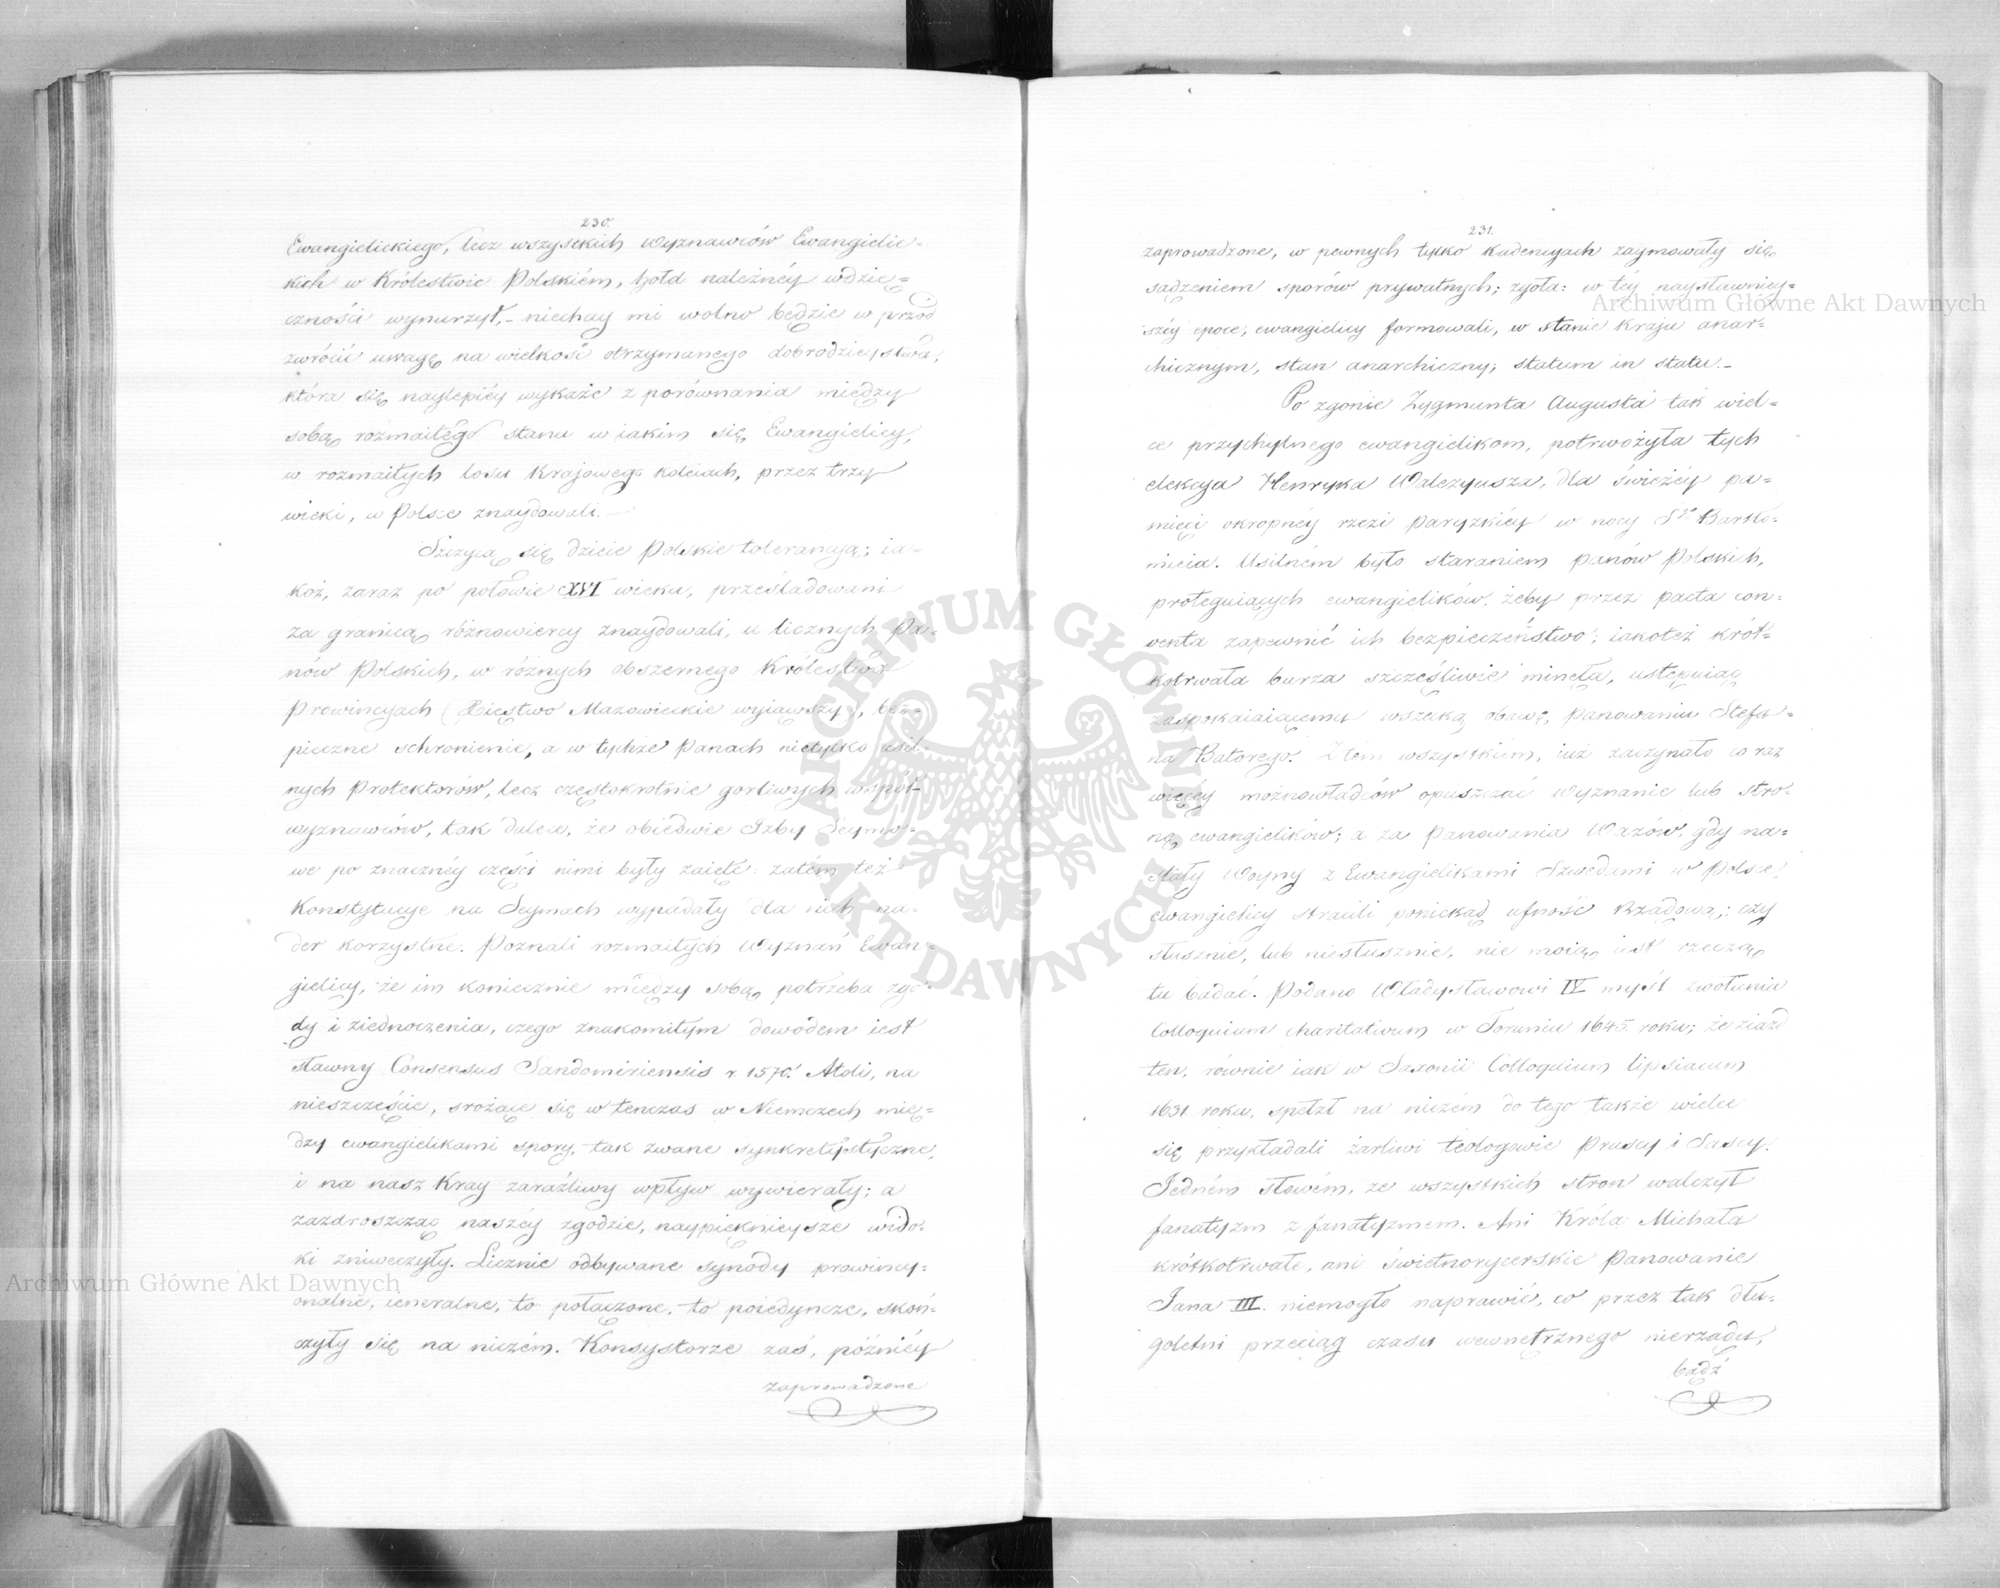 230.
Ewangielickiego, lecz wszystkich wyznawców Ewangielic=
kich w Królestwie Polskiém, hołd należnéy wdzię=
czności wynurzył,- niechay mi wolno będzie w przód
zwrócić uwagę na wielkość otrzymanego dobrodzieystwa,
która się naylepiéy wykaże z porównania między
sobą rozmaitego stanu w iakim się Ewangielicy,
w rozmaitych losu krajowego kolejach, przez trzy
wieki, w Polsce znaydowali.-
Szczycą się dzieie Polskie tolerancyą; ia-
koż, zaraz po połowie XVI wieku, prześladowani
za granicą różnowiercy znaydowali, u licznych Pa=
nów Polskich, w różnych obszernego Królestwa
Prowincyach (Xięstwo Mazowieckie wyiąwszy), bez=
pieczne schronienie, a w tychże Panach nietylko usil=
nych Protektorów, lecz częstokrotnie gorliwych współ=
wyznawców, tak dalece, że obiedwie Izby Seymo=
we po znacznéy części nimi były zaięte: zatém też
Konstytucye na Seymach wypadały dla nich na=
der korzystne. Poznali rozmaitych Wyznań Ewan=
gielicy, że im koniecznie między sobą potrzeba zgo=
dy i ziednoczenia, czego znakomitym dowodem iest
sławny Consensus Sandomiriensis r. 1570. Atoli, na
nieszczęście, srożące się w tenczas w Niemczech mię=
dzy ewangielikami spory, tak zwane synkretystyczne,
i na nasz Kray zaraźliwy wpływ wywierały; a
zazdroszcząc naszéy zgodzie, naypięknieysze wido=
ki zniweczyły. Licznie odbywane synody prowincy=
onalne, ieneralne, to połączone, to poiedyncze, skoń=
czyły się na niczém. Konsystorze zaś, późniéy
zaprowadzone
231.
zaprowadzone, w pewnych tylko kadencyach zaymowały się
sądzeniem sporów prywatnych; zgoła: w téy naysławniey=
széy epoce, ewangielicy formowali, w stanie kraju anar=
chicznym, stan anarchiczny; statum in statu.-
Po zgonie Zygmunta Augusta tak wiel=
ce przychylnego ewangielikom, potrwożyła tych
elekcya Henryka Walezyusza, dla świeżéy pa=
mięci okropnéy rzezi paryzkiéy w nocy Sgo Bartło=
mieia. Usilném było staraniem panów Polskich,
proteguiących ewangielików, żeby przez pacta con=
venta zapewnić ich bezpieczeństwo; iakoteż krót=
kotrwała burza szczęśliwie minęła, ustępuiąc
zaspokaiaiącemu wszelką obawę, panowaniu Stefa=
na Batorego. Z tém wszystkiém, iuż zaczynało co raz
więcéy możnowładców opuszczać wyznanie lub stro=
nę ewangielików; a za panowania Wazów, gdy na=
stały Woyny z Ewangielikami Szwedami w Polsce,
ewangielicy stracili poniekąd ufność Rządową; czy
słusznie, lub niesłusznie, nie moią iest rzeczą
tu badać. Podano Władysławowi IV myśl zwołania
Colloquium charitativum w Toruniu 1645. roku; że ziazd
ten, równie iak w Saxonii Colloquium lipsiacum
1631. roku, spełzł na niczém do tego także wielce
się przykładali żarliwi teologowie Pruscy i Sascy.
Jedném słowém, ze wszystkich stron walczył
fanatyzm z fanatyzmem. Ani Króla Michała
krótkotrwałe, ani świetnorycerskie Panowanie
Jana III. niemogło naprawić, co przez tak dłu=
goletni przeciąg czasu wewnętrznego nierządu,
bądź
ARCHIWUM GŁÓWNE AKT DAWNYCH
Archiwum Główne Akt Dawnych
Archiwum Główne Akt Dawnych